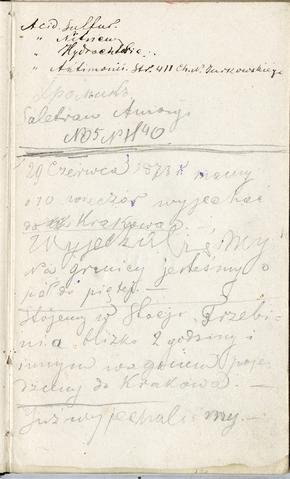 Acid. Sulfur.
" Nitricum
" Hydrochlor.
" Antimonii. Str. 411 Chol. Turkowskiego
Громыкъ
Saletran Amonji
№ 5 № 1140
29 Czerwca 1873 r. mamy
o 10 wieczór wyjechać
do Krakowa. —
Wyjechaliśmy
Na granicy jesteśmy o
pół do piątej. —
Stojemy w Stacji Trzebi-
nia blizko 2 godziny i
innym wagonem poje-
dziemy do Krakowa. —
Już wyjechaliśmy. —